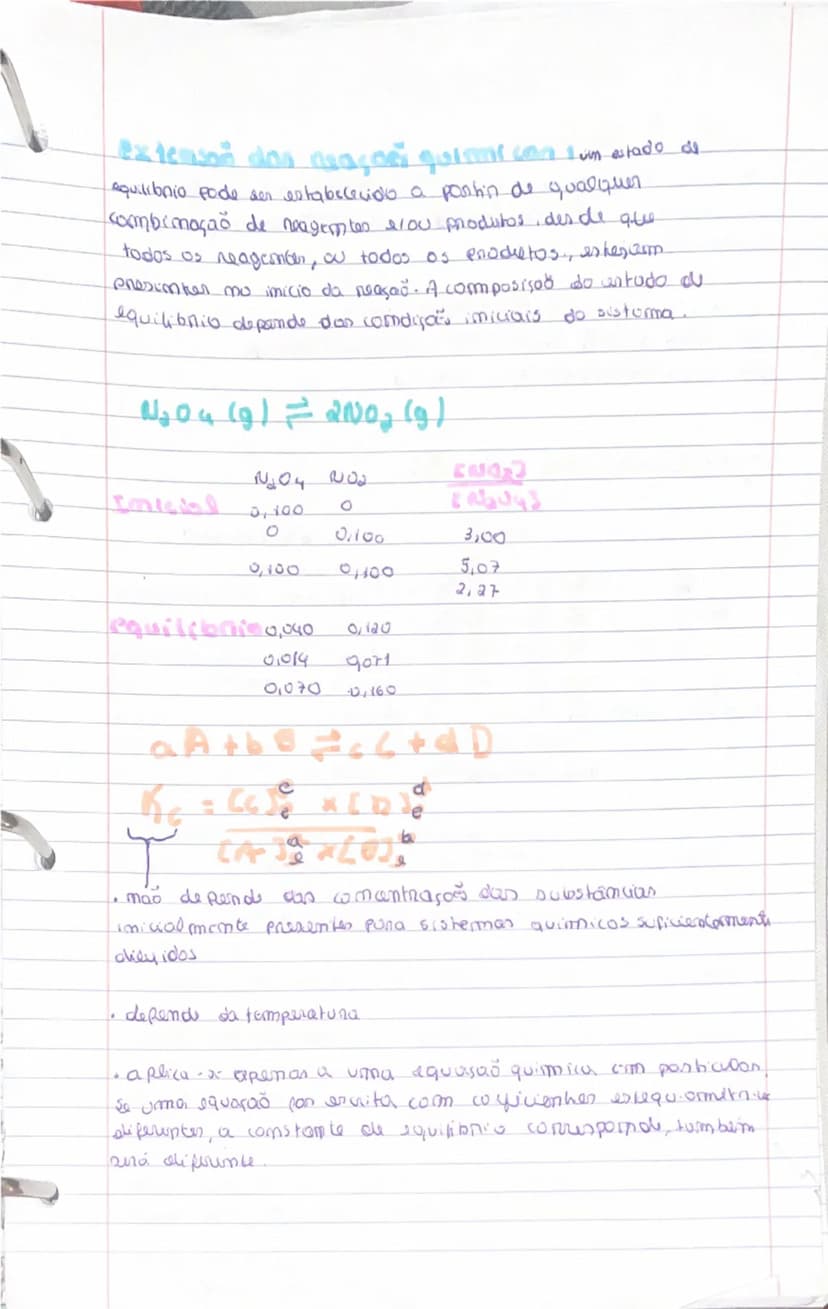 extensão das reações químicas: um estado de
equilíbrio pode ser estabelecido a partir de qualquer
combinação de reagentes e/ou produtos, desde que
todos os reagentes, ou todos os produtos, estejam
presentes no início da reação. A composição do estado de
equilíbrio depende das condições iniciais do sistema.
N₂O₄ (g) ⇌ 2NO₂ (g)
N₂O₄ NO₂ [NO₂]/[N₂O₄]
Inicial 0,100 0
0 0,100 3,00
0,100 0,100 5,07
2,27
equilíbrio 0,040 0,120
0,014 0,071
0,070 0,160
aA + bB ⇌ cC + dD
Kc = [C]ᶜₑ × [D]ᵈₑ
[A]ᵃₑ × [B]ᵇₑ
. não depende das concentrações das substâncias
inicialmente presentes para sistemas químicos suficientemente
diluídos
. depende da temperatura
. aplica-se apenas a uma equação química em particular,
se uma equação for escrita com coeficientes estequiométricos
diferentes, a constante de equilíbrio corresponde, também
será diferente.